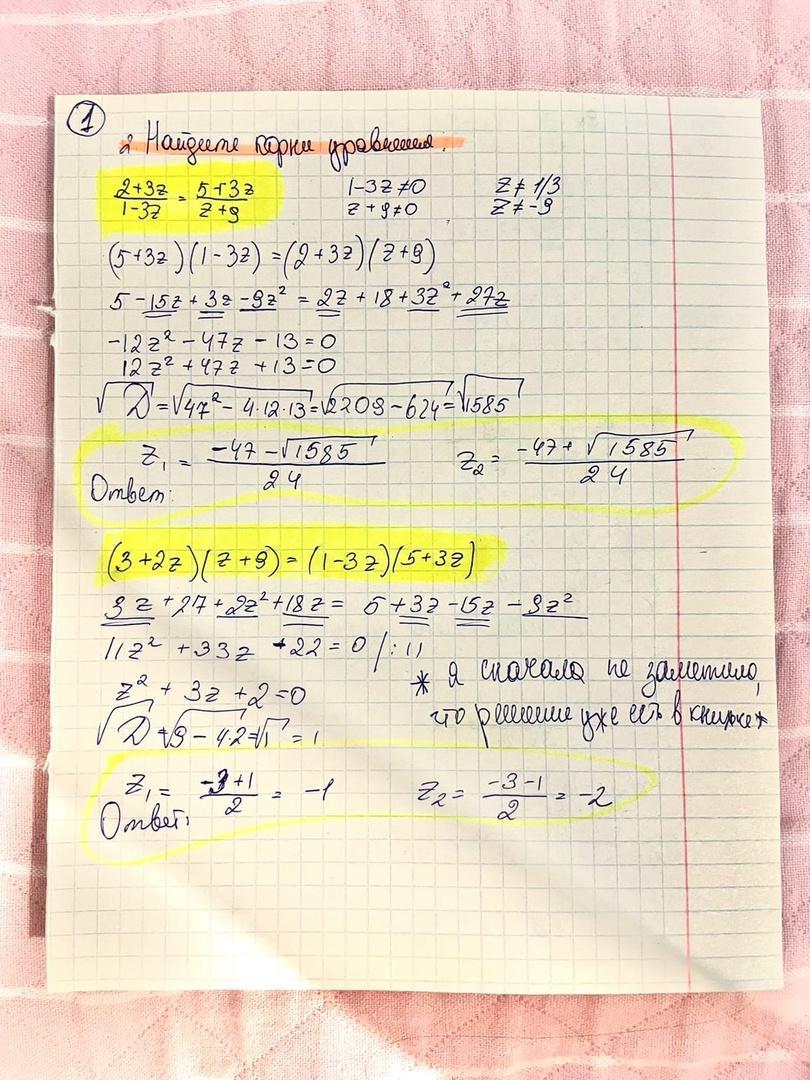 1
2 Найдите корни уравнения:
(2+3z)/(1-3z) = (5+3z)/(z+9)   1-3z≠0   z≠1/3
z+9≠0   z≠-9
(5+3z)(1-3z)=(2+3z)(z+9)
5-15z+3z-9z² = 2z+18+3z²+27z
-12z²-47z-13=0
12z²+47z+13=0
√D=√47²-4·12·13=√2209-624=√1585
z₁ = (-47-√1585)/24   z₂ = (-47+√1585)/24
Ответ:
(3+2z)(z+9)=(1-3z)(5+3z)
3z+27+2z²+18z = 5+3z-15z-9z²
11z²+33z+22=0 /:11
z²+3z+2=0
* Я сначала не заметила,
что решение уже есть в книжке*
√D=√9-4·2=√1=1
z₁ = (-3+1)/2 = -1   z₂ = (-3-1)/2 = -2
Ответ: